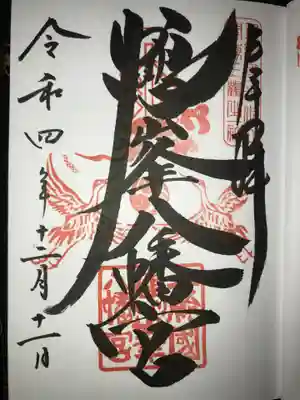 奉拝
鶴峯八幡宮
令和四年十二月十一日